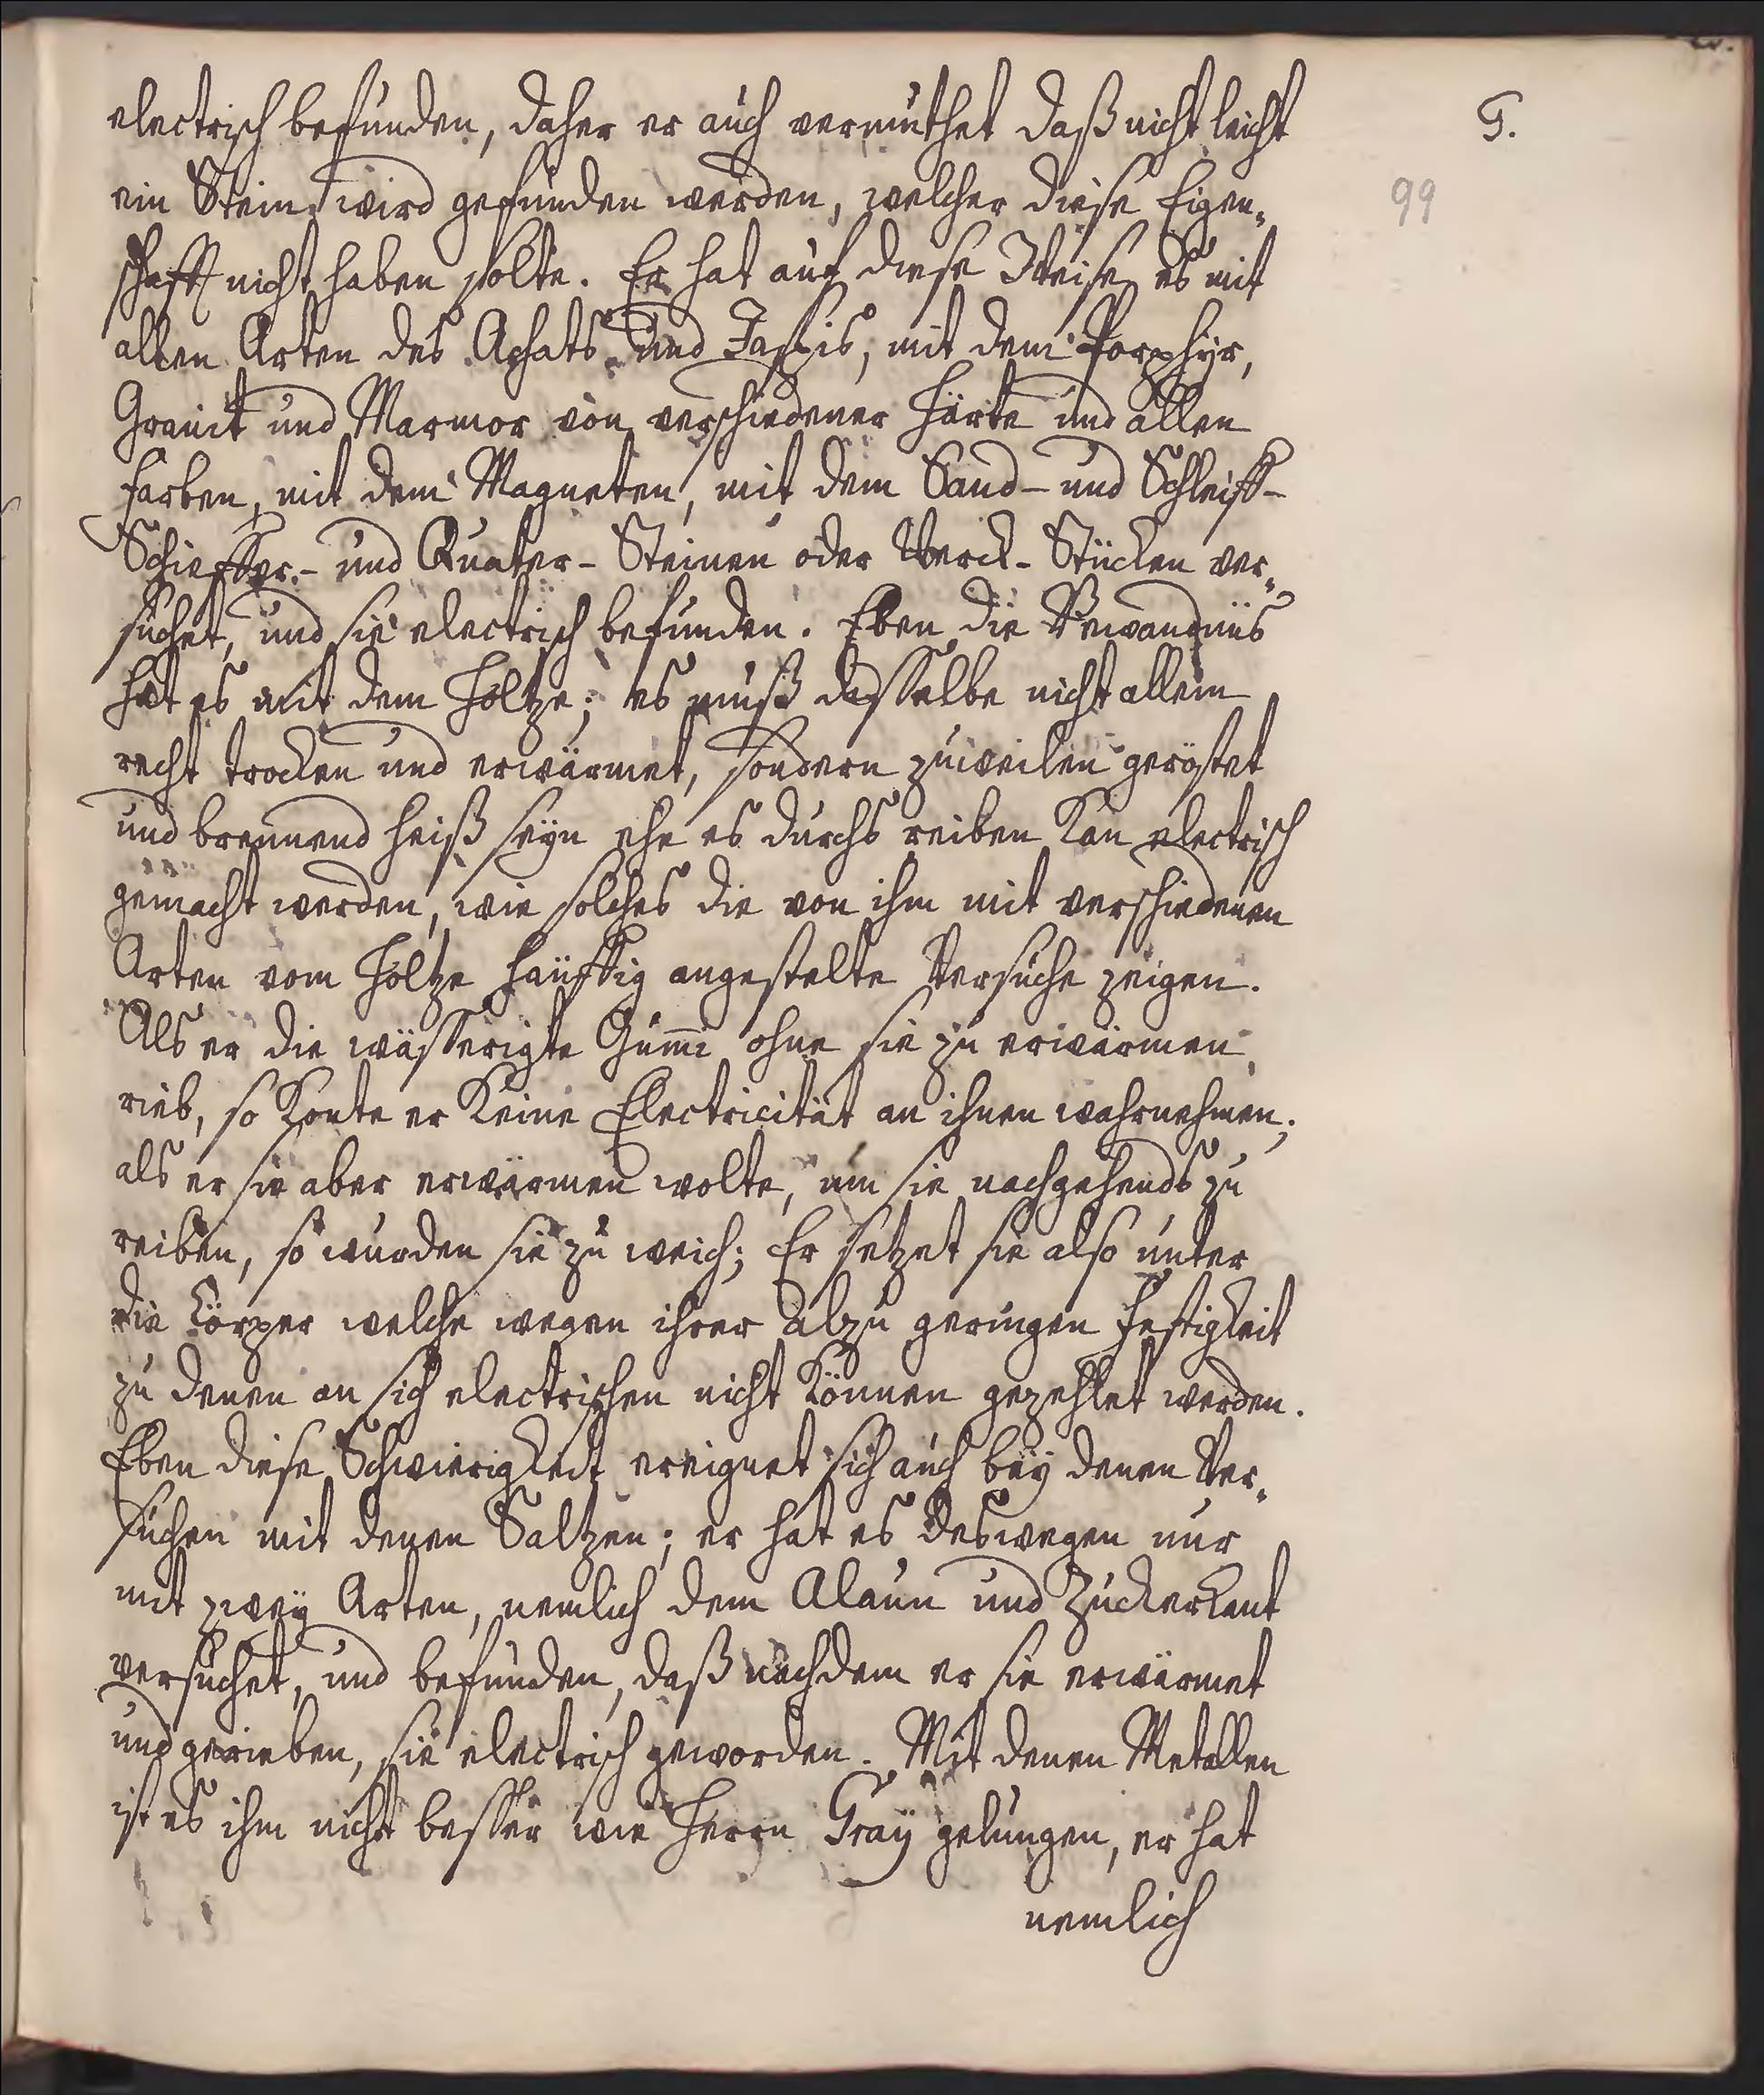 electrisch befunden, daher er auch vermuthet daß nicht leicht
G.
ein Stein wird gefunden werden, welcher diese Eigen-
99
schafft nicht haben solte. Er hat auf diese Weise es mit
allen Arten des Achats und Jaspis, mit dem Porphyr,
Granit und Marmor von verschiedener Härte und allen
Farben, mit dem Magneten, mit dem Sand- und Schleiff-
Schieffer- und Quater-Steinen oder Werck-Stücken ver-
suchet, und sie electrisch befunden. Eben die Bewandnüs
hat es mit dem Holtze; es muß dasselbe nicht allein
recht trocken und erwärmet, sondern zuweilen geröstet
und brennend heiß seyn ehe es durchs reiben kan electrisch
gemacht werden, wie solches die von ihm mit verschiedenen
Arten vom Holtze häuffig angestelte Versuche zeigen.
Als er die wässerigte Gum̅i ohne sie zu erwärmen
rieb, so konte er keine Electricität an ihnen wahrnehmen;
als er sie aber erwärmen wolte, um sie nachgehends zu
reiben, so wurden sie zu weich; Er setzet sie also unter
die Cörper welche wegen ihrer alzu geringen Festigkeit
zu denen an sich electrischen nicht können gezehlet werden.
Eben diese Schwierigkeit ereignet sich auch bey denen Ver-
suchen mit denen Saltzen; er hat es deswegen nur
mit zwey Arten, nemlich dem Alaun und Zuckerkant
versuchet, und befunden, daß nachdem er sie erwärmet
und gerieben, sie electrisch geworden. Mit denen Metallen
ist es ihm nicht besser wie Herrn Gray gelungen, er hat
nemlich